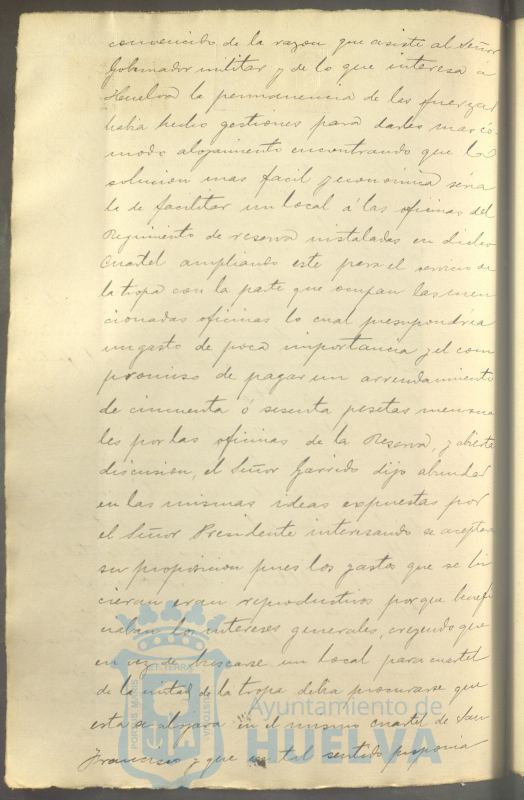 convencido de la razon que asiste al Señor
Gobernador militar y de lo que interesa á
Huelva la permanencia de las fuerzas
habia hecho gestiones para darles mas có-
modo alojamiento encontrando que la
solucion mas facil y economica seria
la de facilitar un local á las oficinas del
Regimiento de reserva instaladas en dicho
Cuartel ampliando este para el servicio de
la tropa con la parte que ocupan las men
cionadas oficinas lo cual presupondria
un gasto de poca importancia y el com
promiso de pagar un arrendamiento
de cincuenta ó sesenta pesetas mensua
les por las oficinas de la Reserva, y abierta
discusion, el Señor Garrido dijo abundar
en las mismas ideas expuestas por
el Señor Presidente interesando se aceptara
su proposicion pues los gastos que se hi
cieran eran reproductivos porque benefi
ciaban los intereses generales, creyendo que
en vez de buscarse un local para cuartel
de la mitad de la tropa debia procurarse que
esta se alojara en el mismo cuartel de San
Francisco y que en tal sentido proponia
PORTUS MARIS ET TERRAE CUSTODIA
Ayuntamiento de
HUELVA